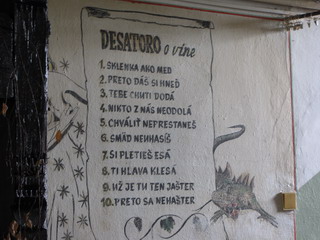 DESATORO o víne
1. SKLENKA AKO MED
2. PRETO DÁŠ SI HNEĎ
3. TEBE CHUTI DODÁ
4. NIKTO Z NÁS NEODOLÁ
5. CHVÁLIŤ NEPRESTANEŠ
6. SMÄD NEUHASÍŠ
7. SI PLETIEŠ ESÁ
8. TI HLAVA KLESÁ
9. UŽ JE TU TEN JAŠTER
10. PRETO SA NEHAŠTER